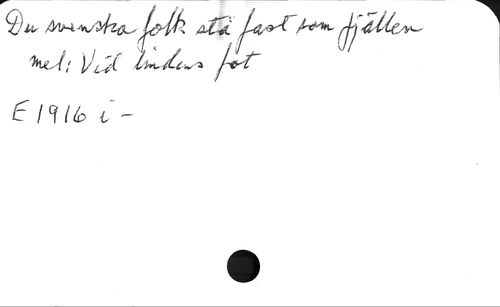 Du svenska folk stå fast som fjällen
mel: Vid lindens fot
E 1916 i -